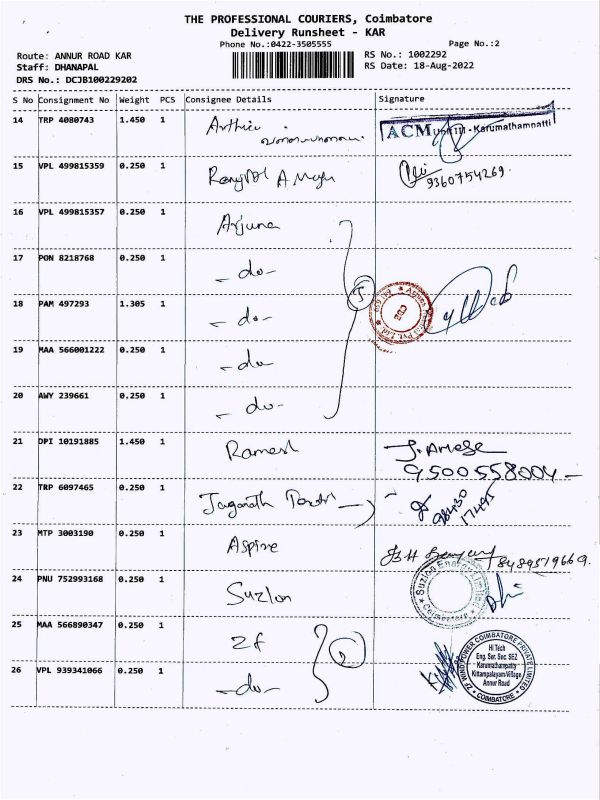 THE PROFESSIONAL COURIERS, Coimbatore
Delivery Runsheet - KAR
Phone No.:0422-3505555
Page No.:2
Route: ANNUR ROAD KAR
RS No.: 1002292
Staff: DHANAPAL
RS Date: 18-Aug-2022
DRS No.: DCJB100229202
S No Consignment No Weight PCS Consignee Details Signature
14 TRP 4080743 1.450 1
ACM Unit III - Karumathampatti
15 VPL 499815359 0.250 1
9360754269.
16 VPL 499815357 0.250 1 Arjuna
17 PON 8218768 0.250 1 - do -
5
18 PAM 497293 1.305 1 - do -
19 MAA 566001222 0.250 1 - do -
20 AWY 239661 0.250 1 - do -
21 DPI 10191885 1.450 1 Ramesh
9500558004
22 TRP 6097465 0.250 1 Jaganath
23 MTP 3003190 0.250 1 Aspire
8489519669.
24 PNU 752993168 0.250 1 Suzlon
Suzlon Energy Limited
Coimbatore
25 MAA 566890347 0.250 1 Zf
ZF WIND POWER COIMBATORE PRIVATE LIMITED
Hi Tech
Eng. Ser. Sec. SEZ
Karumathampatty
Kittampalayam Village
Annur Road
COIMBATORE
26 VPL 939341066 0.250 1 - do -